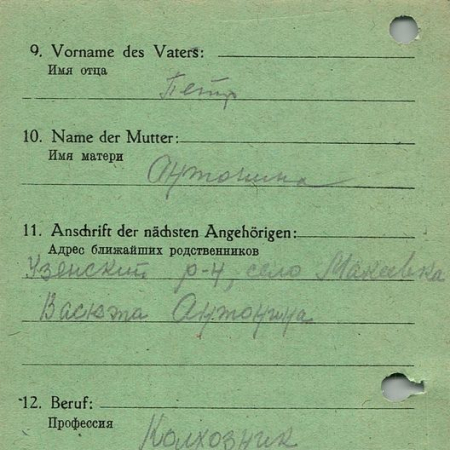 9. Vorname des Vaters:
Имя отца
Петр
10. Name der Mutter:
Имя матери
Антонина
11. Anschrift der nächsten Angehörigen:
Адрес ближайших родственников
Узенский р-н, село Макеевка
Васюта Антонина
12. Beruf:
Профессия
Колхозник